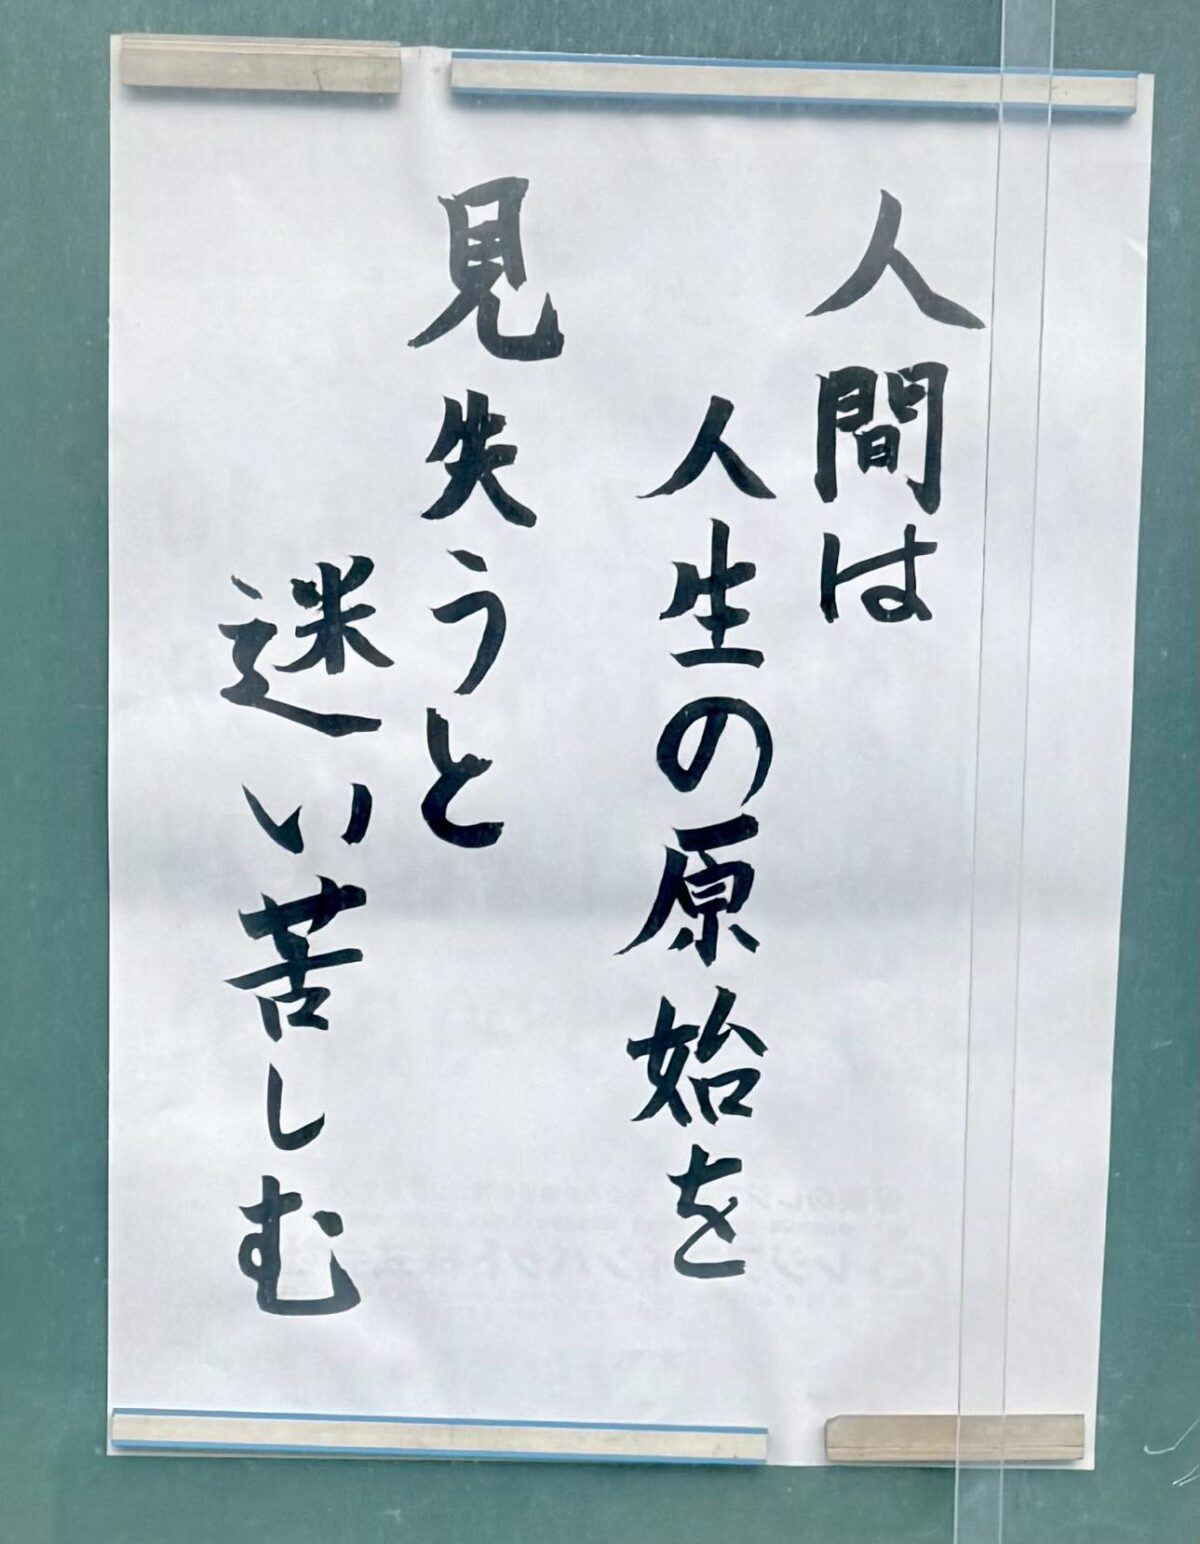 人間は
人生の原始を
見失うと
迷い苦しむ